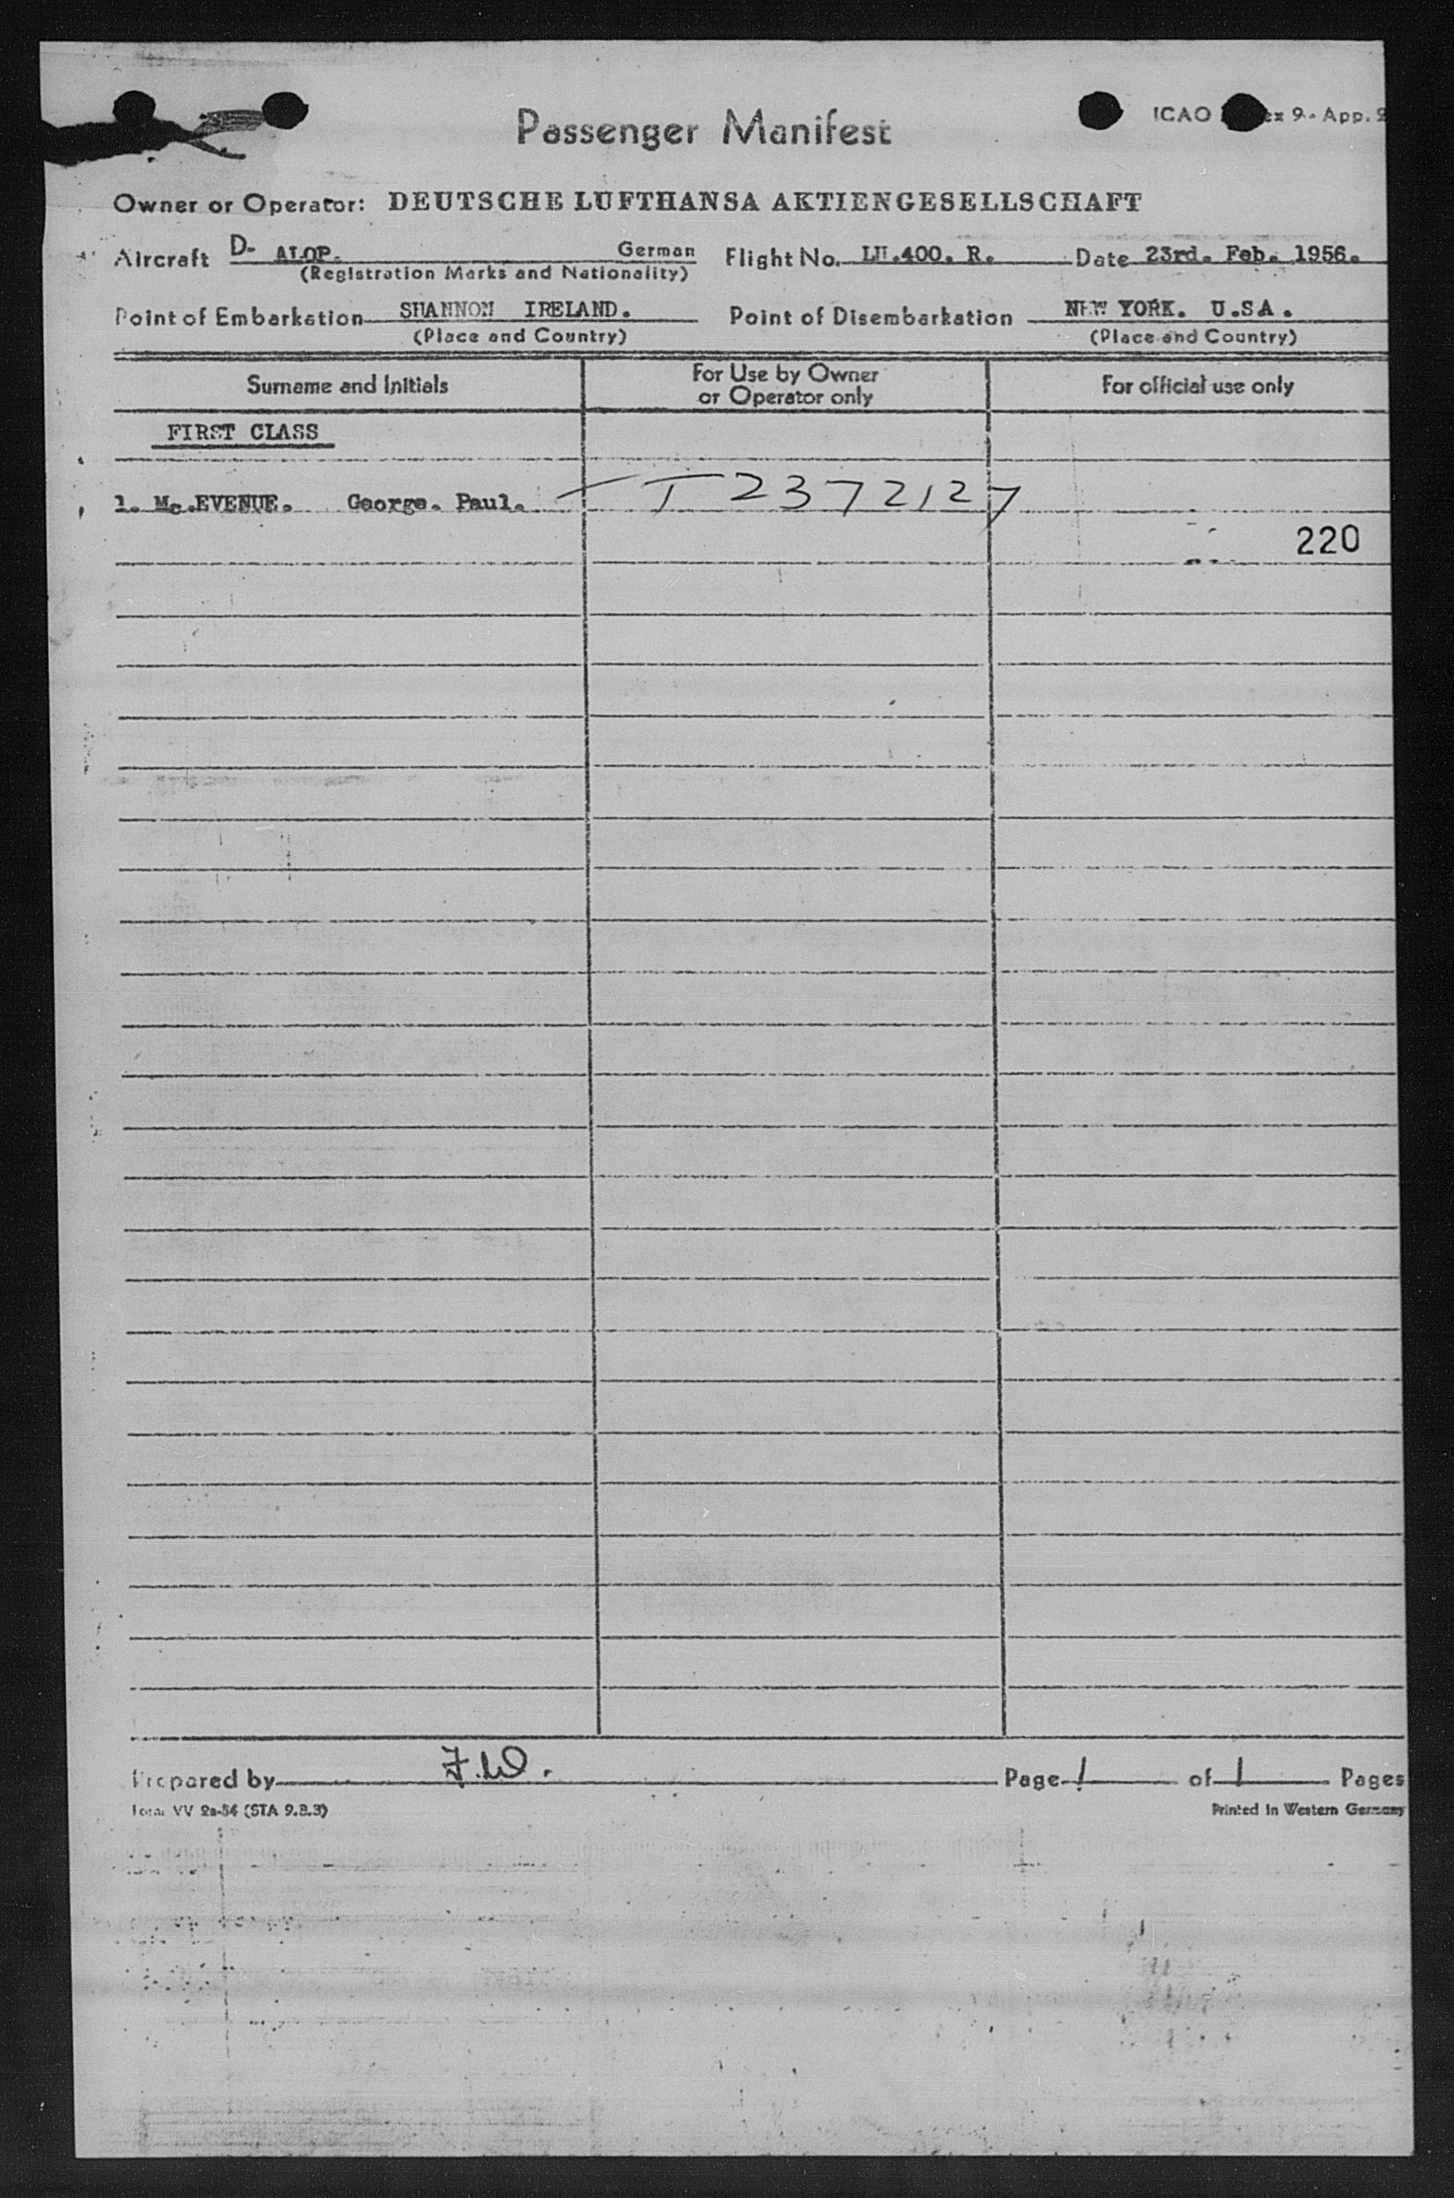 Passenger Manifest
ICAO ex 9 - App. 2
Owner or Operator: DEUTSCHE LUFTHANSA AKTIENGESELLSCHAFT
Aircraft D- ALOP. German Flight No. LH.400. R. Date 23rd. Feb. 1956.
(Registration Marks and Nationality)
Point of Embarkation SHANNON IRELAND. Point of Disembarkation NEW YORK. U.S.A.
(Place and Country) (Place and Country)
Surname and Initials For Use by Owner or Operator only For official use only
FIRST CLASS
1. Mc.EVENUE. George. Paul. — I 2372127
220
Prepared by F.W. Page 1 of 1 Pages
Form VV 2a-54 (STA 9.3.3) Printed in Western Germany